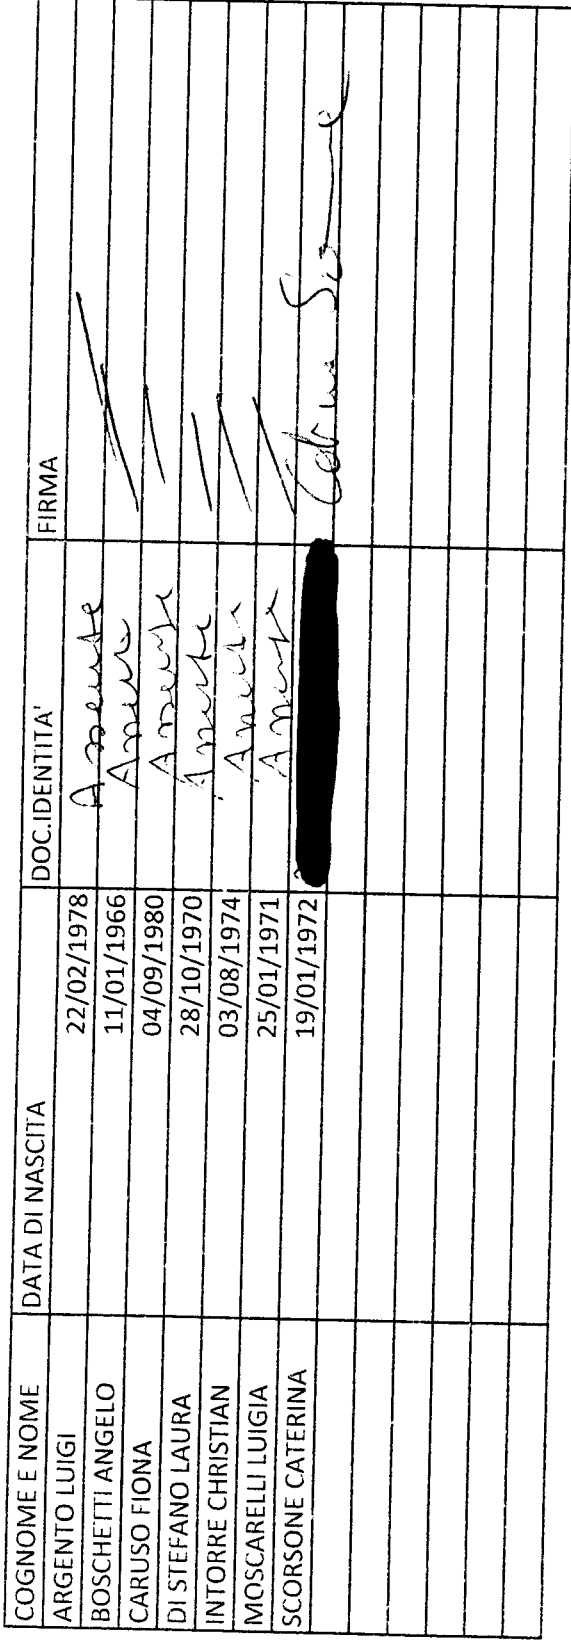 COGNOME E NOME DATA DI NASCITA DOC.IDENTITA' FIRMA
ARGENTO LUIGI 22/02/1978 Assente
BOSCHETTI ANGELO 11/01/1966 Assente
CARUSO FIONA 04/09/1980 Assente
DI STEFANO LAURA 28/10/1970 Assente
INTORRE CHRISTIAN 03/08/1974 Assente
MOSCARELLI LUIGIA 25/01/1971 Assente
SCORSONE CATERINA 19/01/1972